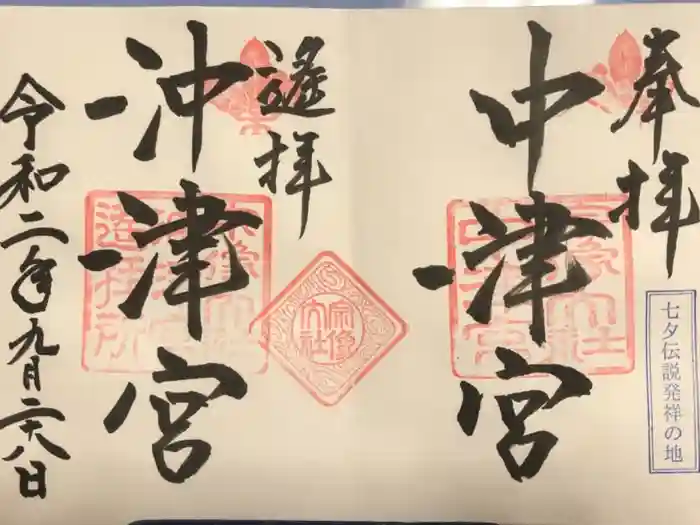 奉拝
中津宮
七夕伝説発祥の地
遙拝
沖津宮
宗像
大社
令和二年九月二十八日